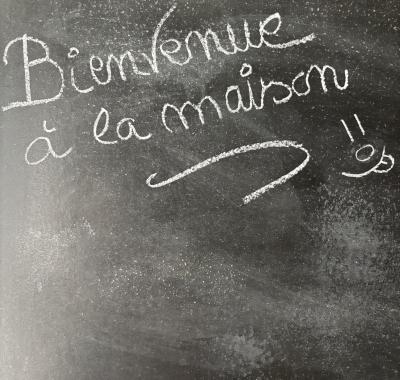 Bienvenue
à la maison